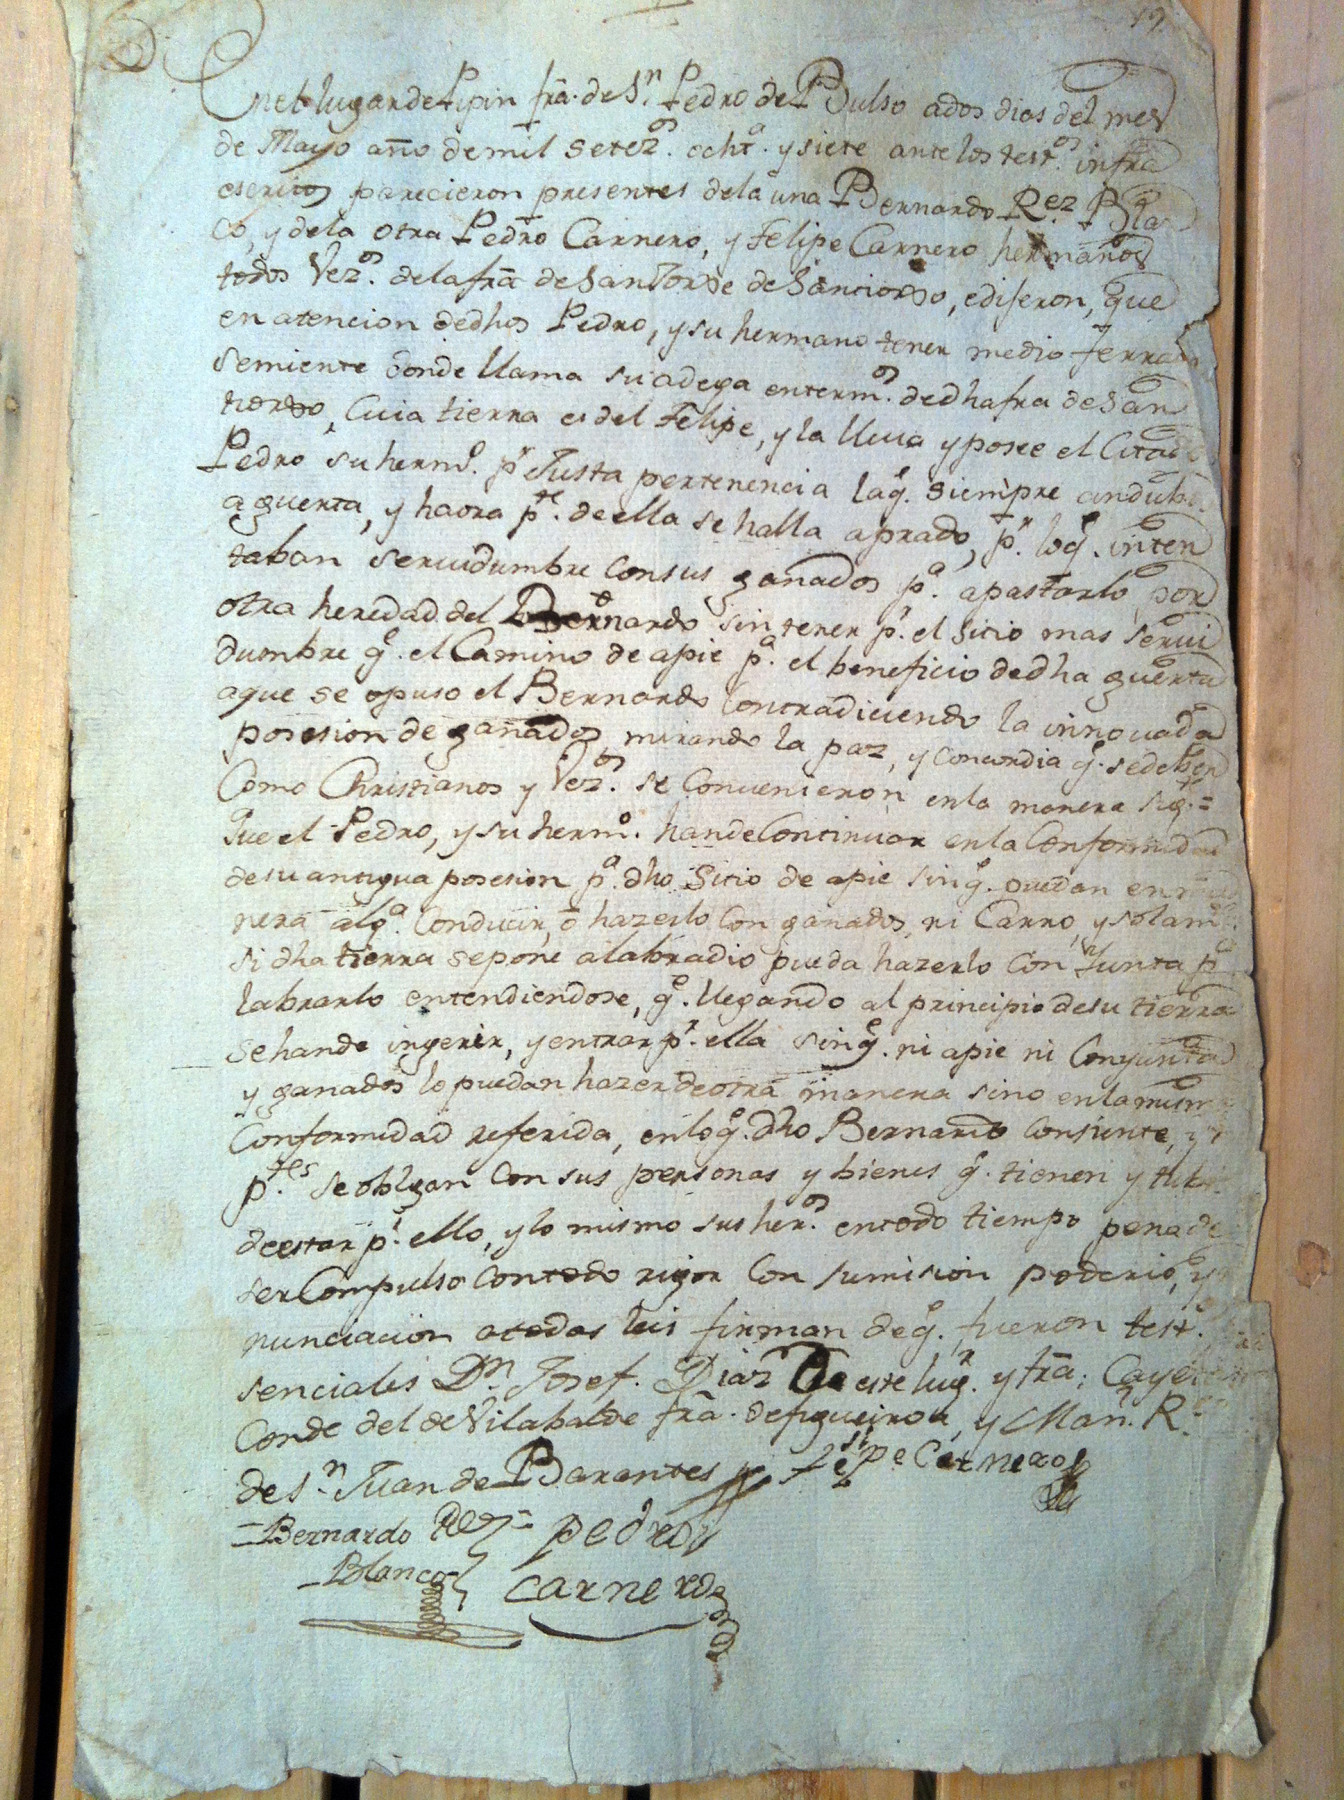 En el lugar de Pipin frâ. de Sn. Pedro de Bulso a dos dias del mes
de Mayo año de mil setezos. ocht.a y siete ante los testos. infra
escritos parecieron presentes de la una Bernardo Rez Blan
co, y de la otra Pedro Carnero, y Felipe Carnero hermanos
todos Vezos. de la frâ de San Jorxe de Santiorxo, edijeron, que
en atencion dedhos Pedro, y su hermano tener medio ferrado
semiente donde llama su adega entermos. dedha fra de San
tiorxo, Cuia tierra es del Felipe, y la lleua y posee el Citado
Pedro su hermo. pr Justa pertenencia laq.e siempre andubo
a guerta, y haora pte. de ella se halla aprado, pr. loq.e inten
taban seruidumbre con sus ganados pa. apastarlo por
otra heredad del Bernardo sin tener pr. el sitio mas serui
dumbre q.e el Camino de apie pa. el beneficio dedha guerta
aque se opuso el Bernardo Contradiciendo la innouada
posesion de ganados, mirando la paz, y concordia q.e sedeben
Como Christianos y Vezos. se Conuenieron en la manera sigte. =
Que el Pedro, y su hermo. hande Continuar en la Conformidad
de su antigua posesion pa. dho Sitio de apie sinq.e puedan en ma
nera alga. Conducir, o hazerlo con ganados, ni Carro, y solamte.
si dha tierra sepone alabradio pueda hazerlo con Junta pa
labrarlo entendiendose, q.e llegando al principio desu tierra
sehande ingerir, y entrar pr. ella sinq.e ni apie ni Conjunta
y ganados lo puedan hazer deotra manera sino enla mism
Conformidad referida, enloq.e dho Bernardo Consiente, y
ptes. se obligan Con sus personas y bienes q.e tienen y tubi
deestar pr. ello, y lo mismo sus heros. en todo tiempo pena de
ser Compulso Contodo rigor Con sumision poderio, y
nunciacion atodas leis firman deq.e fueron test.
senciales Dn. Josef. Diaz de este lugr. y frâ; Cayetano
Conde del de Vilabalde frâ. defigueiroa, y Man. R.
de Sn. Juan de Barantes Felipe Carnero
Bernardo Rez= Pedro
Blanco Carnero